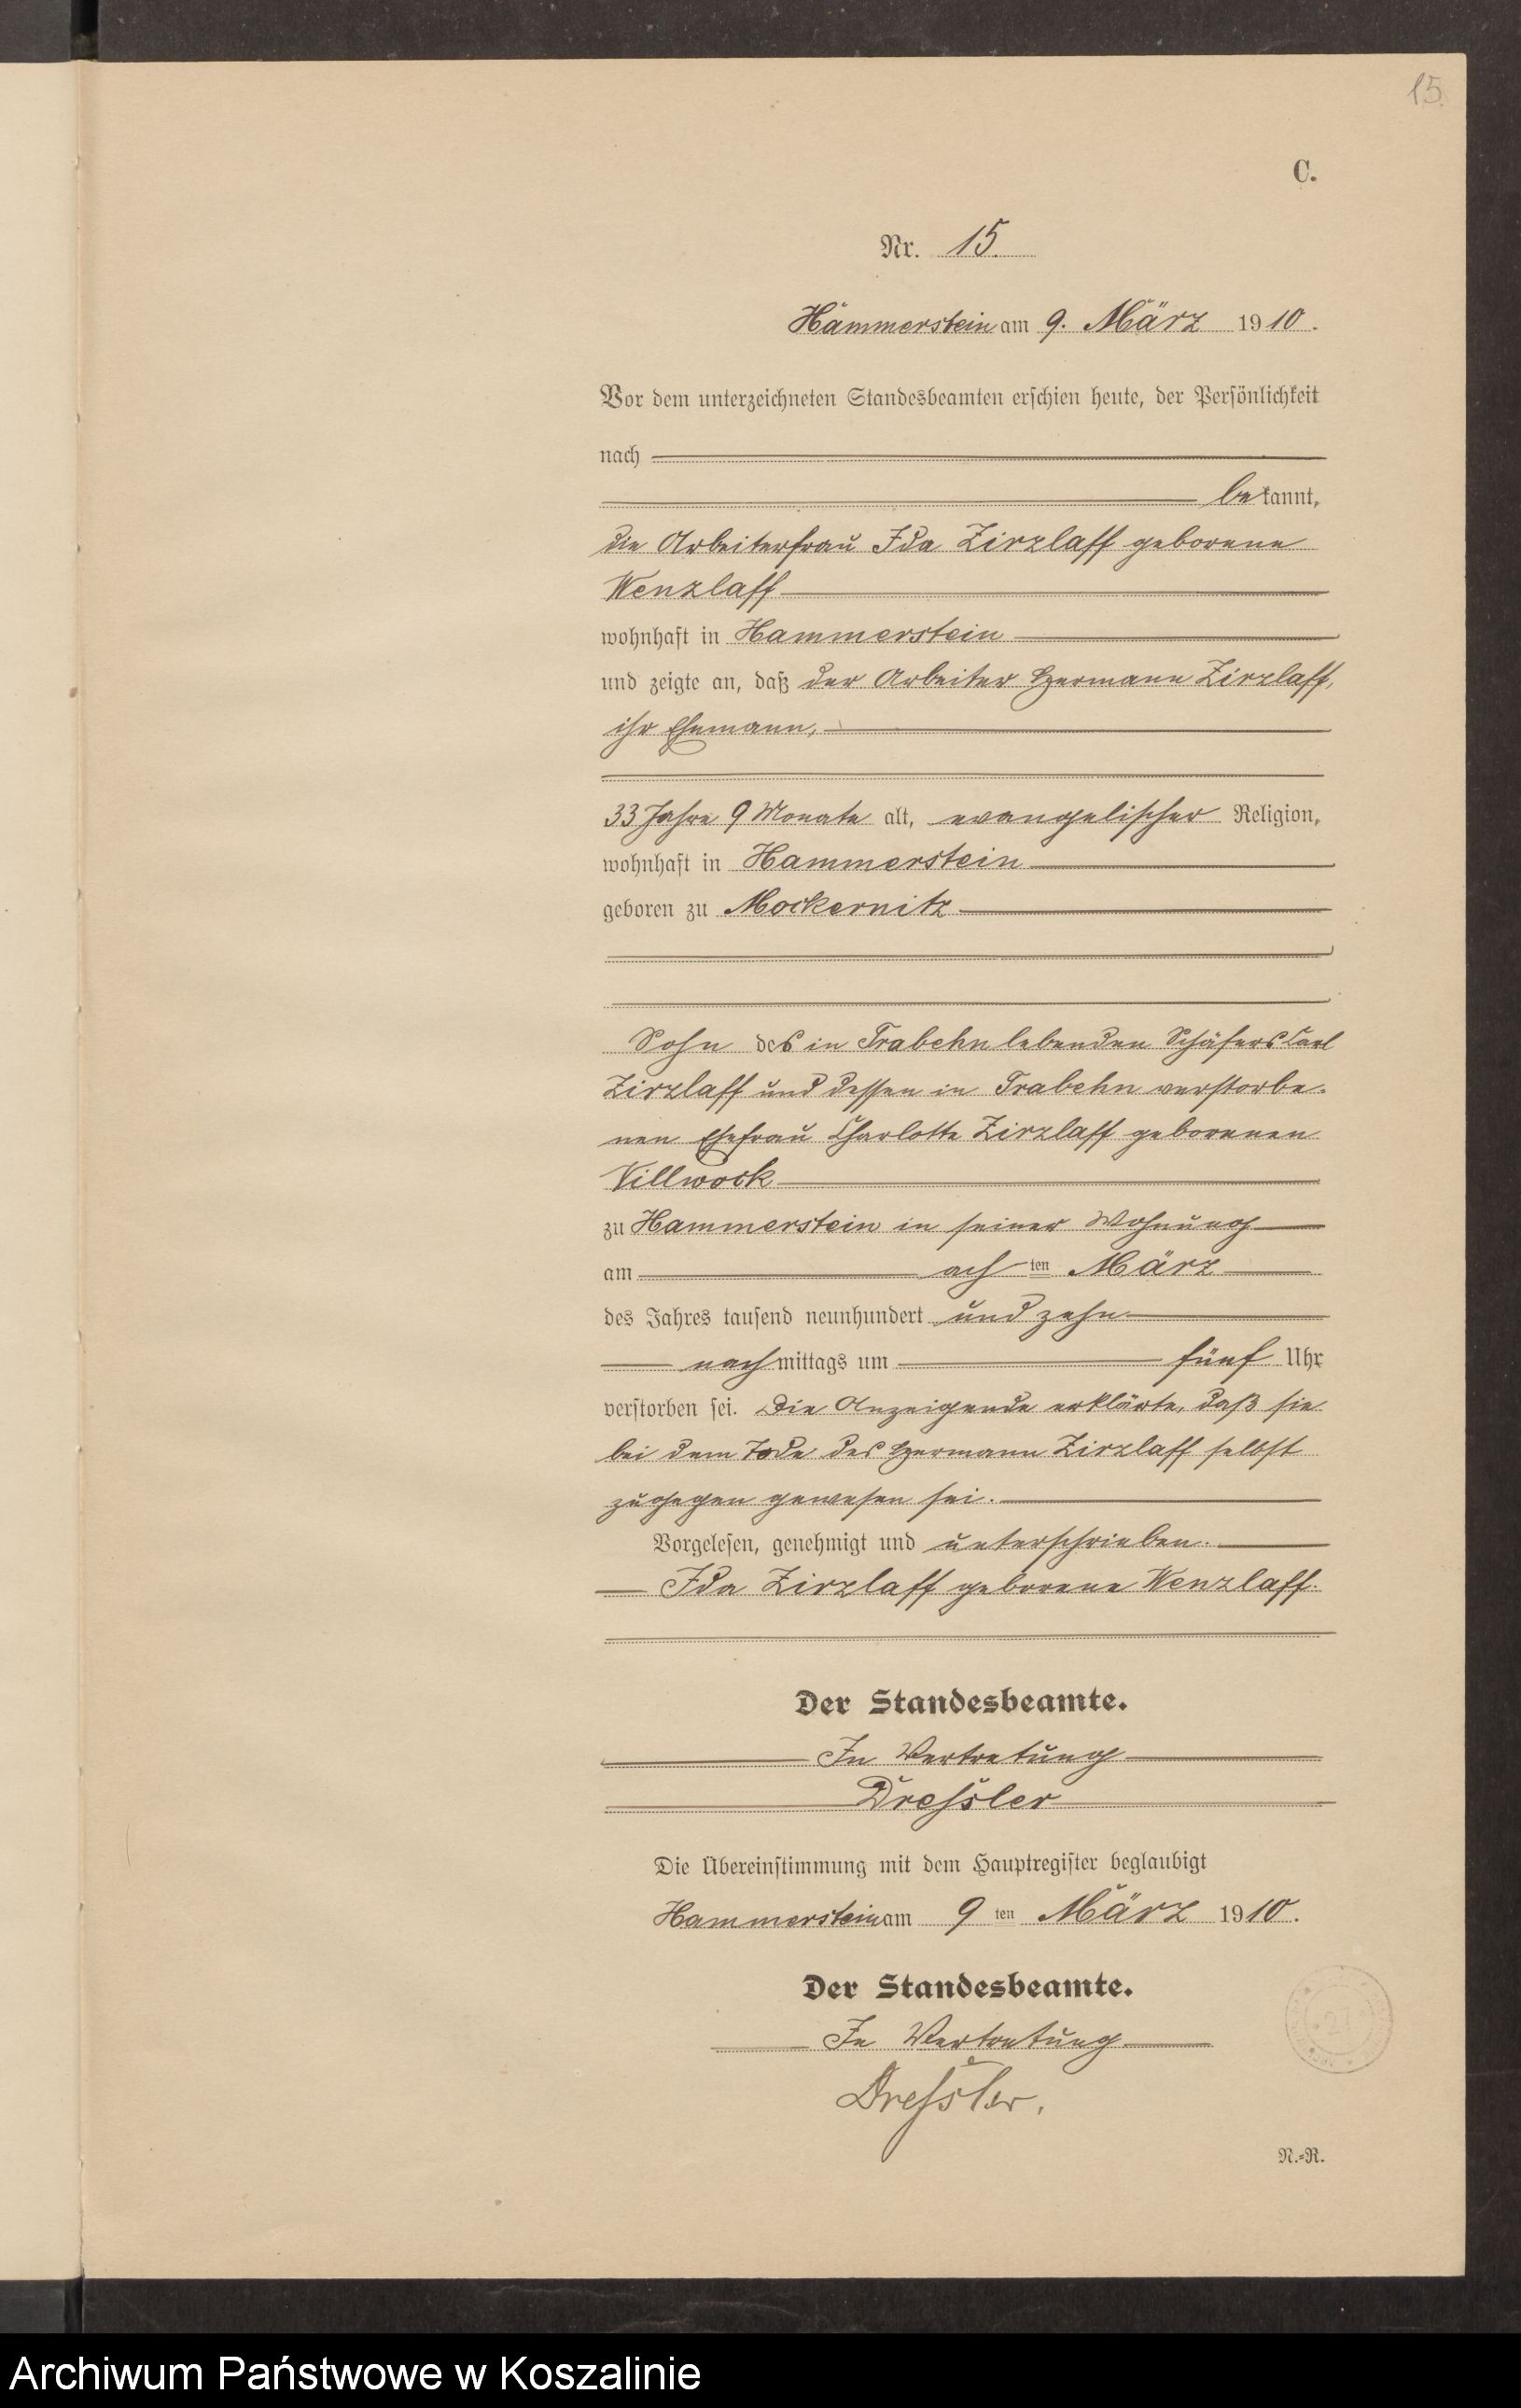 15.
C.
Nr. 15.
Hammerstein am 9. März 1910.
Vor dem unterzeichneten Standesbeamten erschien heute, der Persönlichkeit
nach
bekannt,
die Arbeiterfrau Ida Zirzlaff geborene
Wenzlaff
wohnhaft in Hammerstein
und zeigte an, daß der Arbeiter Hermann Zirzlaff,
ihr Ehemann,
33 Jahre 9 Monate alt, evangelischer Religion,
wohnhaft in Hammerstein
geboren zu Mockernitz
Sohn des in Trabehn lebenden Schäfers Carl
Zirzlaff und dessen in Trabehn verstorbe-
nen Ehefrau Charlotte Zirzlaff geborenen
Villwock
zu Hammerstein in seiner Wohnung
am achten März
des Jahres tausend neunhundert und zehn
nachmittags um fünf Uhr
verstorben sei. Die Anzeigende erklärte, daß sie
bei dem Tode des Hermann Zirzlaff selbst
zugegen gewesen sei.
Vorgelesen, genehmigt und unterschrieben.
Ida Zirzlaff geborene Wenzlaff.
Der Standesbeamte.
In Vertretung
Dressler
Die Übereinstimmung mit dem Hauptregister beglaubigt
Hammerstein am 9ten März 1910.
Der Standesbeamte.
In Vertretung
Dressler.
27
N.=R.
Archiwum Państwowe w Koszalinie